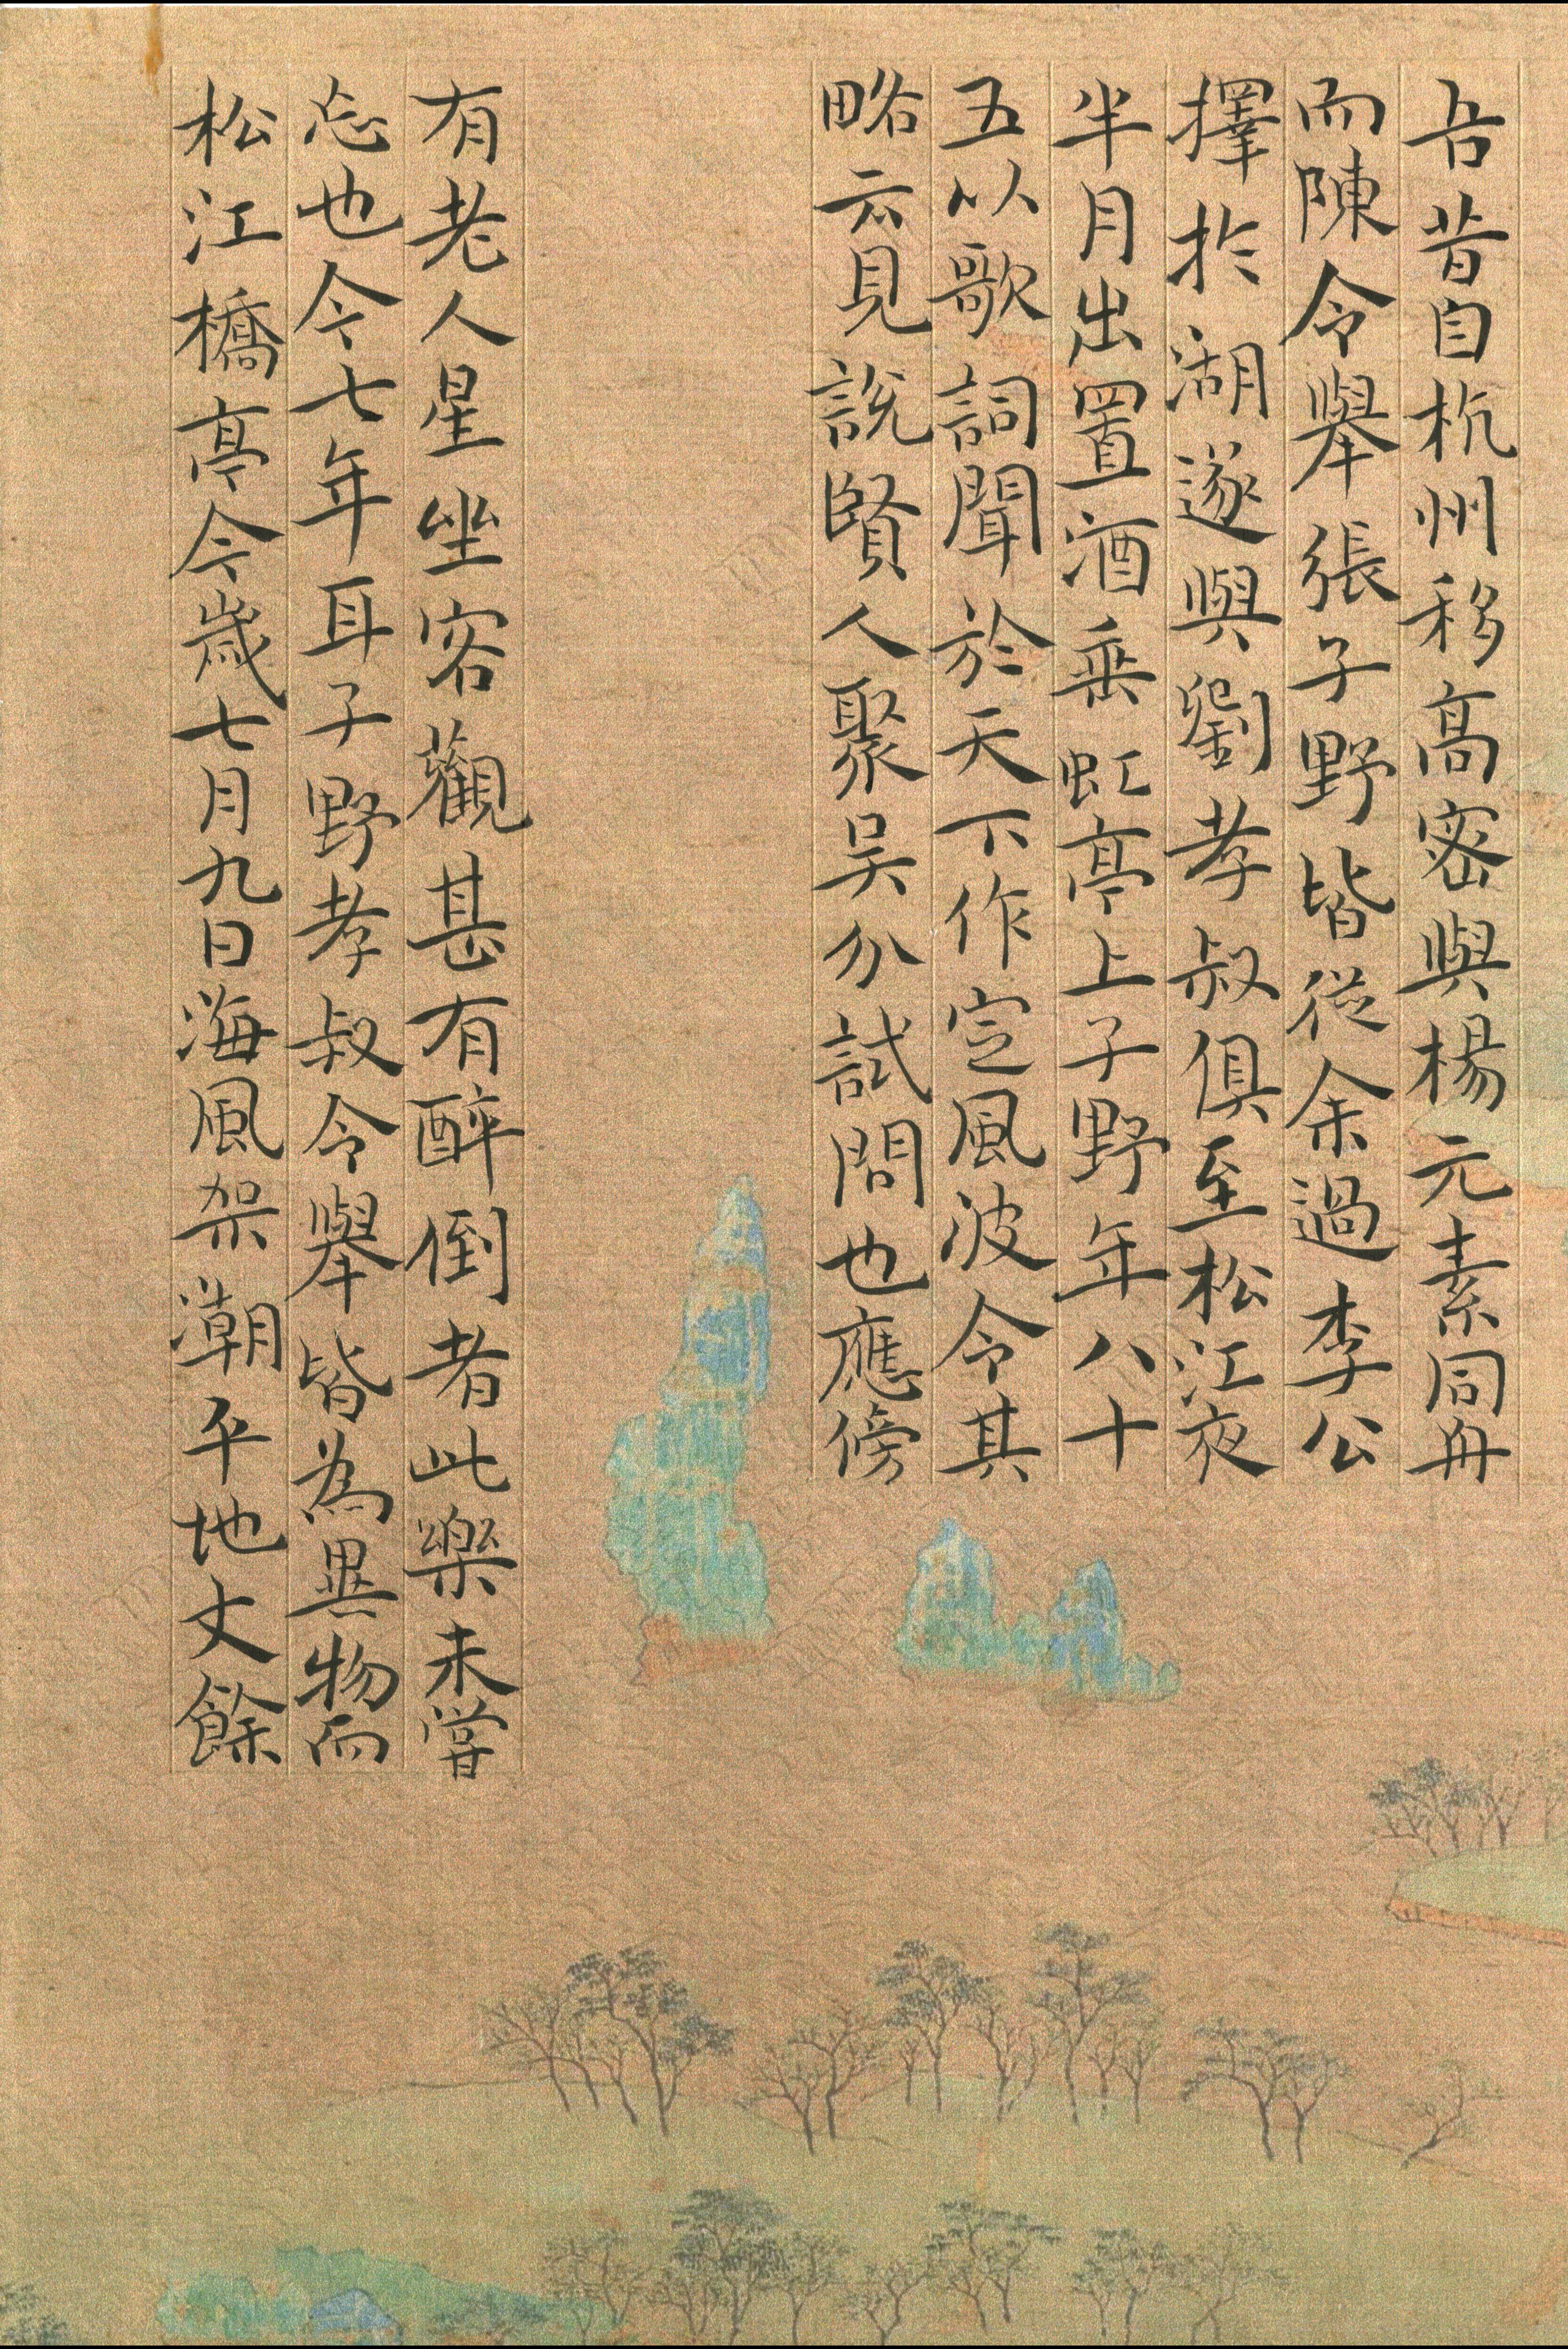 吾昔自杭州移高密與楊元素同舟
而陳令舉張子野皆從余過李公
擇於湖遂與劉孝叔俱至松江夜
半月出置酒垂虹亭上子野年八十
五以歌詞聞於天下作定風波令其
略云見說賢人聚吳分試問也應傍
有老人星坐客觀甚有醉倒者此樂未嘗
忘也今七年耳子野孝叔令舉皆為異物而
松江橋亭今歲七月九日海風架潮平地丈餘